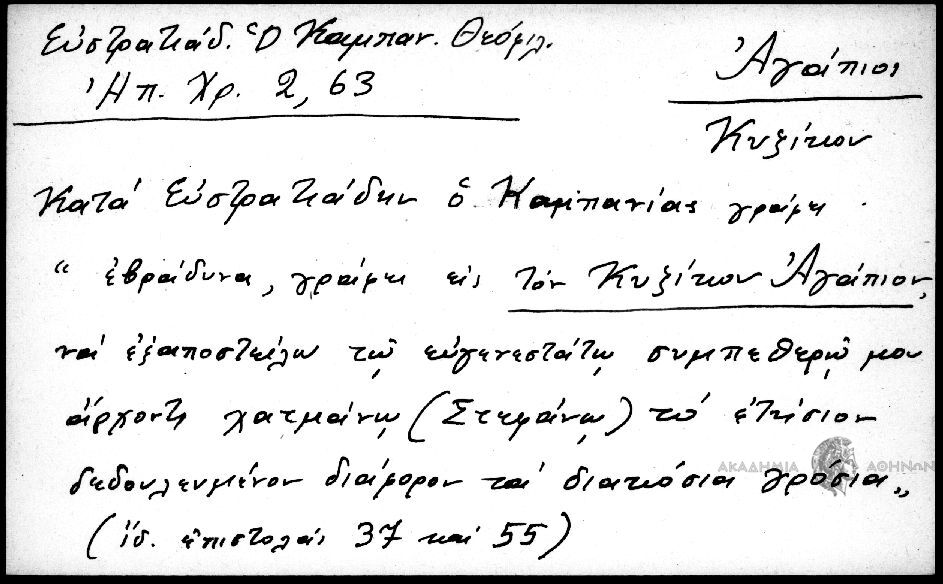 Εὐστρατιάδ. Ὁ Καμπαν. Θεόφιλ.
Ἠπ. Χρ. 2, 63
Ἀγάπιος
Κυζίκου
Κατά Εὐστρατιάδην ὁ Καμπανίας γράφει
“ ἐβράδυνα, γράφει εἰς τόν Κυζίκου Ἀγάπιον,
νά ἐξαποστείλω τῷ εὐγενεστάτῳ συμπεθερῷ μου
ἄρχοντι χατμάνῳ (Στεφάνῳ) τό ἐτήσιον
δεδουλευμένον διάφορον τά διακόσια γρόσια „
(ἰδ. ἐπιστολάς 37 καί 55)
ΑΚΑΔΗΜΙΑ ΑΘΗΝΩΝ